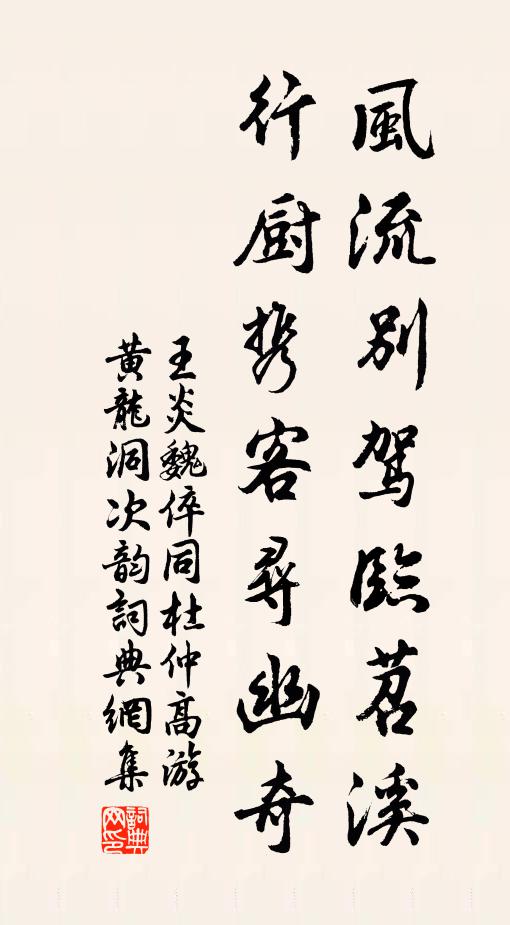 風流別駕臨苕溪
行厨携客尋幽奇
王炎魏倅同杜仲高游
黄龍洞次韵詞典網集
詞典网印